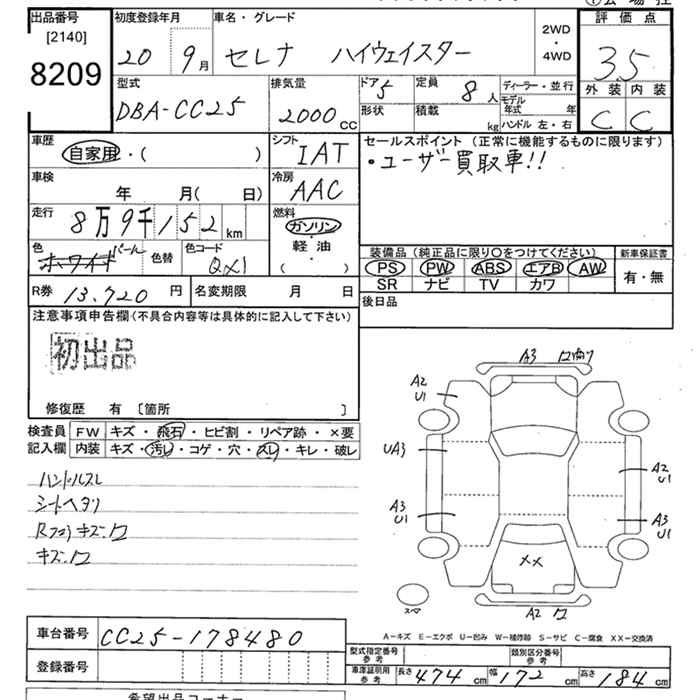 出品番号 初度登録年月 車名・グレード 2WD・4WD 評価点
[2140] 20 9月 セレナ ハイウェイスター 3.5
8209
型式 排気量 ドア 5 定員 8人 ディーラー・並行 外装 内装
DBA-CC25 2000cc 形状 積載 kg モデル年式 年 C C
ハンドル 左・右
車歴 シフト セールスポイント (正常に機能するものに限ります)
自家用・( ) IAT ・ユーザー買取車!!
車検 冷房
年 月( 日) AAC
走行 燃料
8万9千152km ガソリン・軽油・( )
色 色替 色コード 装備品 (純正品に限り○をつけてください) 新車保証書
ホワイト パール QX1 PS PW ABS エアB AW 有・無
SR ナビ TV カワ
R券 13.720円 名変期限 月 日 後日品
注意事項申告欄(不具合内容等は具体的に記入して下さい)
初出品
修復歴 有 [箇所 ]
検査員 FW キズ・飛石・ヒビ割・リペア跡・×要
記入欄 内装 キズ・汚レ・コゲ・穴・スレ・キレ・破レ
ハンドルスレ
シートヘタリ
キズ・ワ
A3
A2
U1
UA3
A2
U1
A3
U1
A3
U1
XX
スペア
A2 ワ
A-キズ E-エクボ U-凹み W-補修跡 S-サビ C-腐食 XX-交換済
車台番号 CC25-178480
型式指定番号 参考 類別区分番号 参考
登録番号 車庫証明用 参考 長さ 474cm 幅 172cm 高さ 184cm
希望出品コーナー